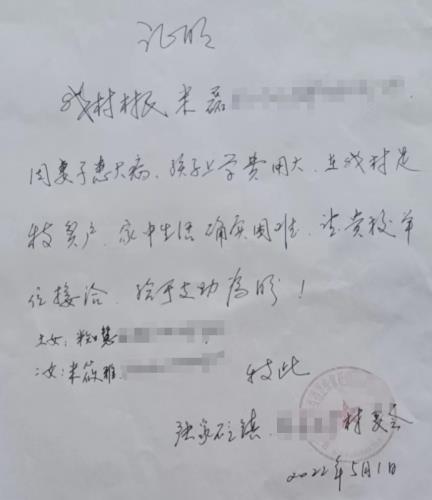 证明
我村村民 米磊
因妻子患大病、孩子上学费用大、在我村是
特贫户、家中生活确实困难、请贵校单
位接洽、给予支助为盼！
长女：米慧
二女：米筱雅
特此
张家石镇 村委会
2022年5月1日